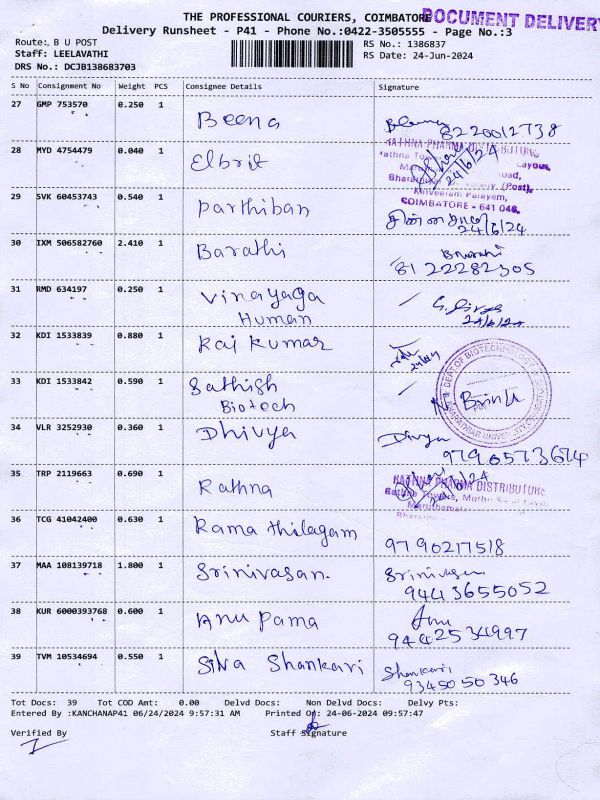 THE PROFESSIONAL COURIERS, COIMBATORE
DOCUMENT DELIVERY
Delivery Runsheet - P41 - Phone No.:0422-3505555 - Page No.:3
Route: B U POST
Staff: LEELAVATHI
DRS No.: DCJB138683703
RS No.: 1386837
RS Date: 24-Jun-2024
S No Consignment No Weight PCS Consignee Details Signature
27 GMP 753570 0.250 1 Beena 8220012738
28 MYD 4754479 0.040 1 Elbrit
RATHNA PHARMA DISTRIBUTORS
24/6/24
COIMBATORE - 641 046.
29 SVK 60453743 0.540 1 Parthiban
24/6/24
30 IXM 506582760 2.410 1 Barathi Bharathi
8122282305
31 RMD 634197 0.250 1 Vinayaga
Human
24/6/24
32 KDI 1533839 0.880 1 Raj Kumar
33 KDI 1533842 0.590 1 Sathish
Biotech
DEPT OF BIOTECHNOLOGY
BHARATHIAR UNIVERSITY
34 VLR 3252930 0.360 1 Dhivya Divya
35 TRP 2119663 0.690 1 Rathna
RATHNA PHARMA DISTRIBUTORS
Rathna Towers,
36 TCG 41042400 0.630 1 Rama thilagam 9790217518
37 MAA 108139718 1.800 1 Srinivasan. Srinivasan
9443655052
38 KUR 6000393768 0.600 1 Anupama Anu
9442534997
39 TVM 10534694 0.550 1 Siva Shankari Shankari
9345050346
Tot Docs: 39 Tot COD Amt: 0.00 Delvd Docs: Non Delvd Docs: Delvy Pts:
Entered By :KANCHANAP41 06/24/2024 9:57:31 AM Printed On: 24-06-2024 09:57:47
Verified By Staff Signature